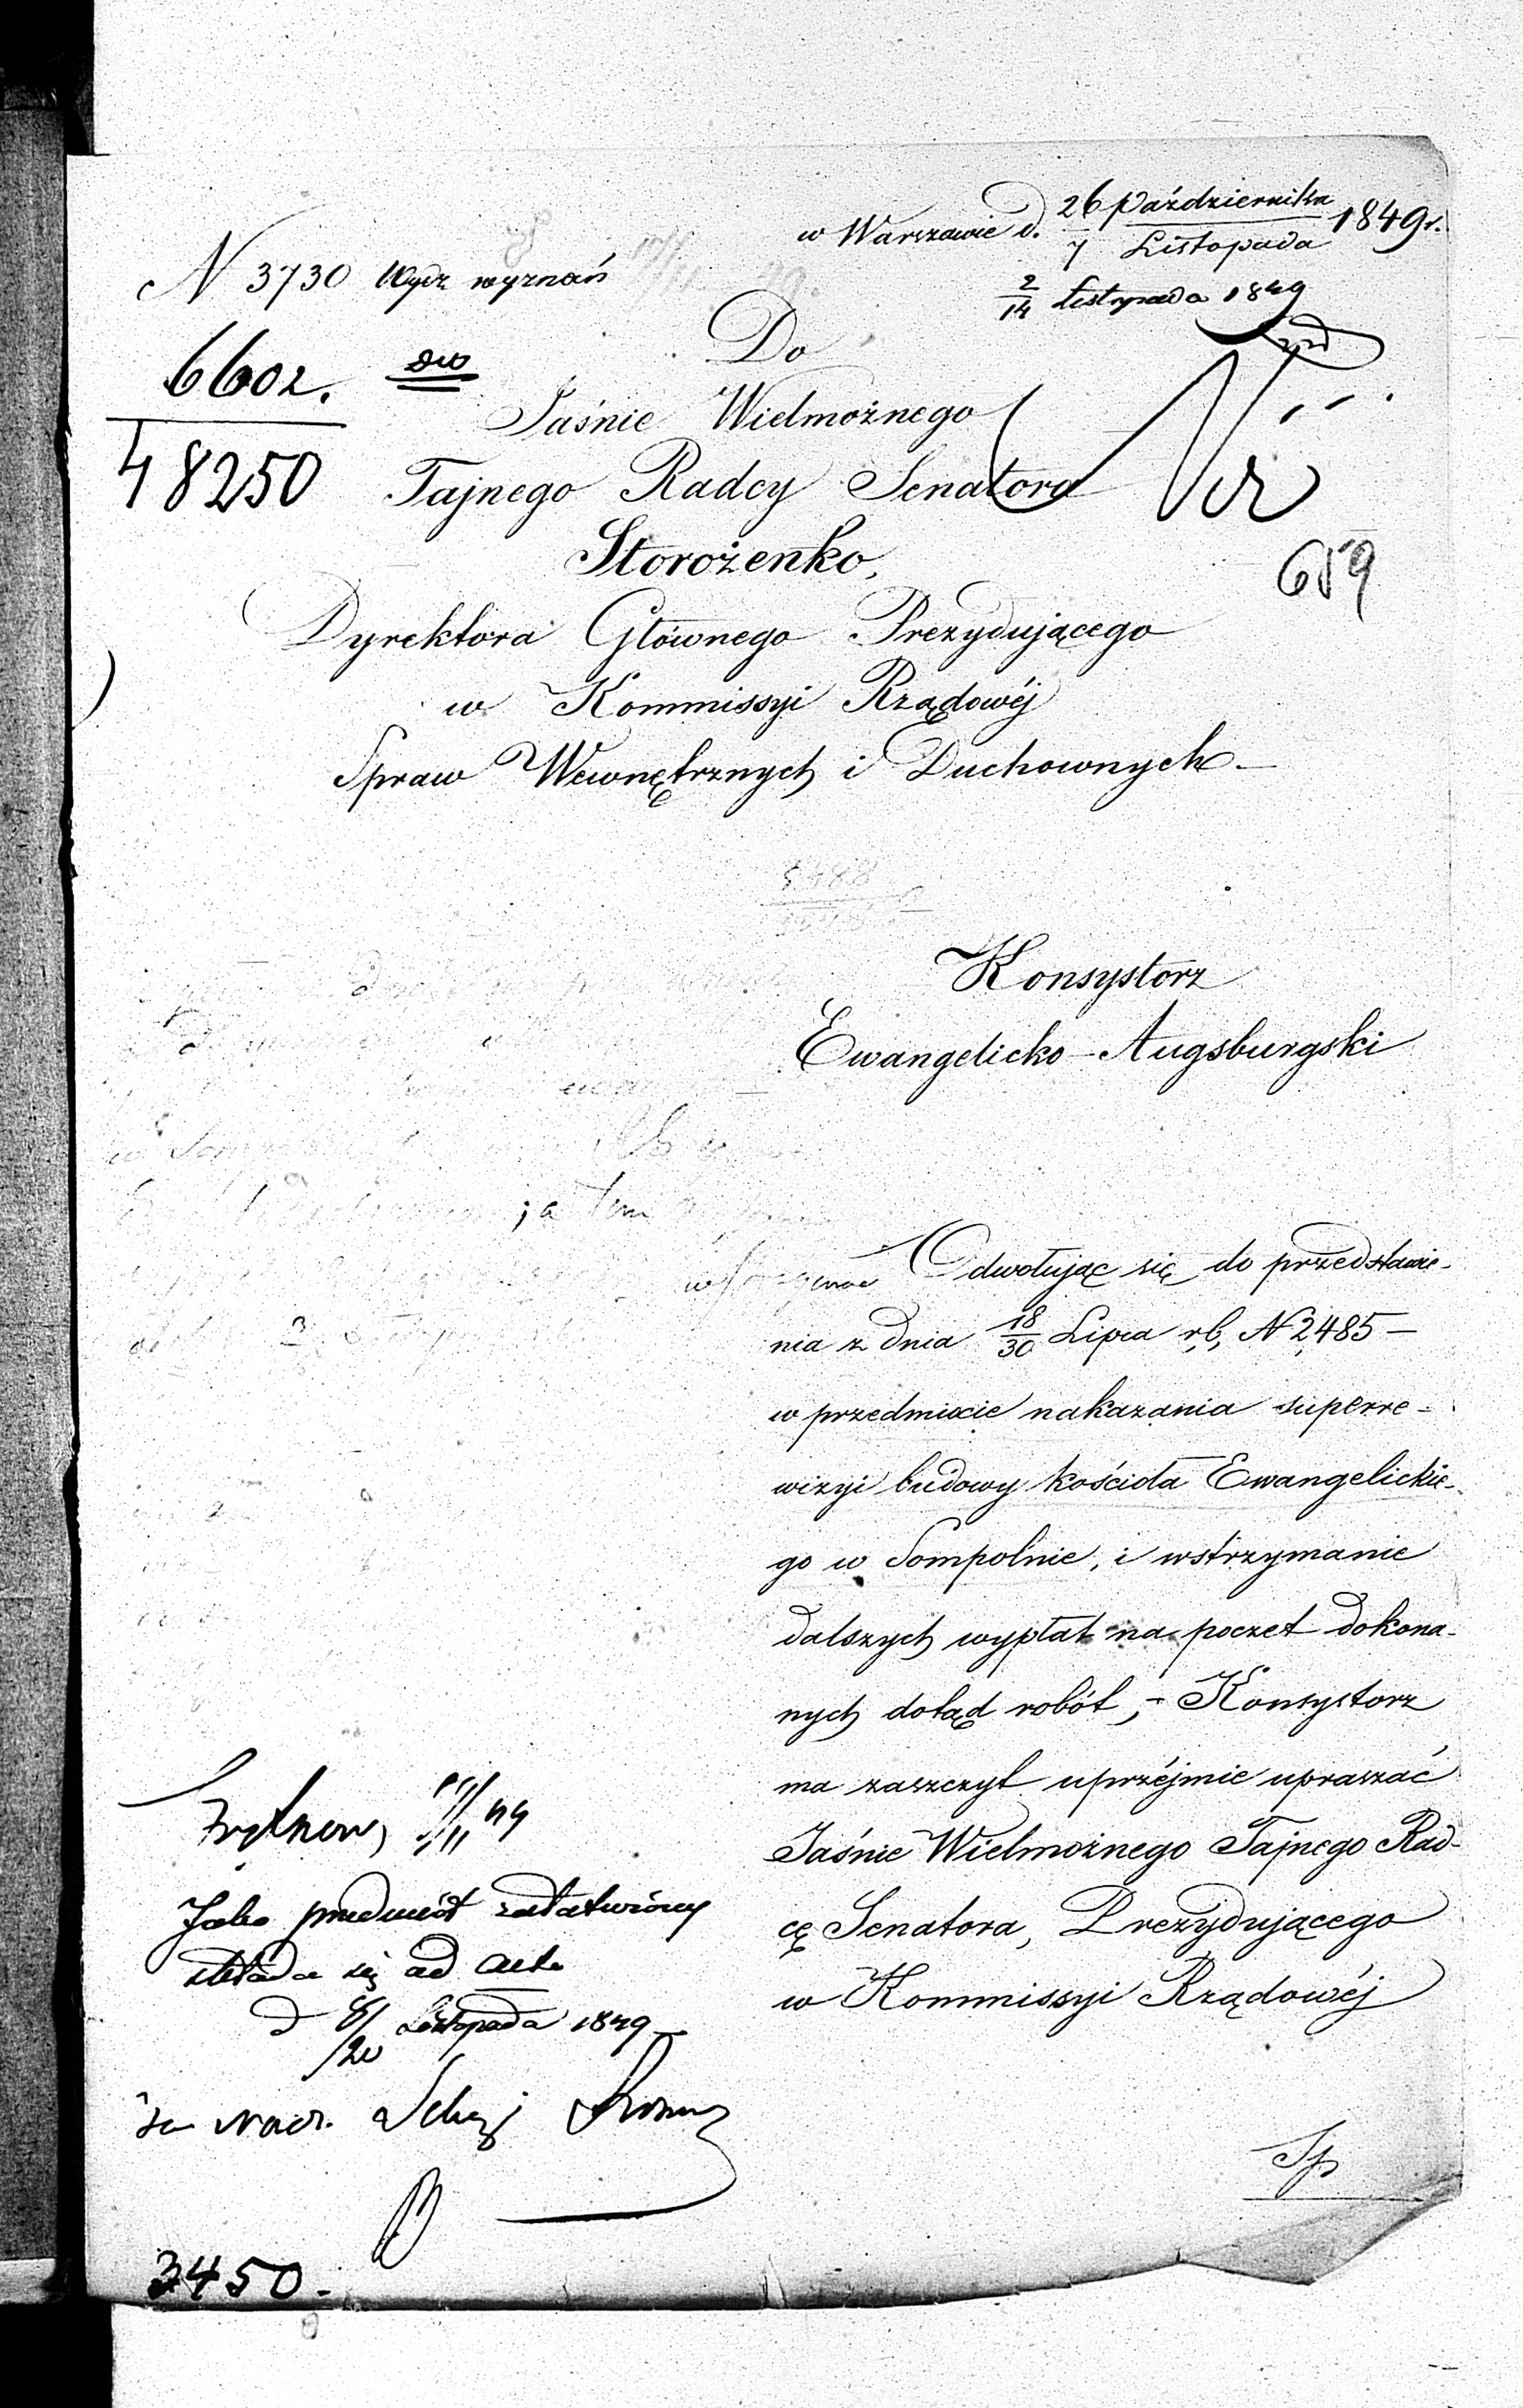 w Warszawie d. 26 Października / 7 Listopada 1849 r.
N 3730 Wydz wyznań
2/14 Listopada 1849
6602.
48250
Do
Jaśnie Wielmożnego
Tajnego Radcy Senatora
Storożenko,
659
Dyrektora Głównego Prezydującego
w Kommissyi Rządowéj
Spraw Wewnętrznych i Duchownych
Konsystorz
Ewangelicko-Augsburgski
Odwołując się do przedstawie-
nia z dnia 18/30 Lipca r.b. N 2,485 —
w przedmiocie nakazania superre-
wizyi budowy kościoła Ewangelickie-
go w Sompolnie, i wstrzymanie
dalszych wypłat na poczet dokona-
nych dotąd robót, - Konsystorz
ma zaszczyt uprzéjmie upraszać
Jaśnie Wielmożnego Tajnego Rad-
cę Senatora, Prezydującego
w Kommissyi Rządowéj
Sp
Jako przedmiót załatwióny
składa się ad acta
d 8/20 Listopada 1849
za Nacz. Sekcyi
3450.